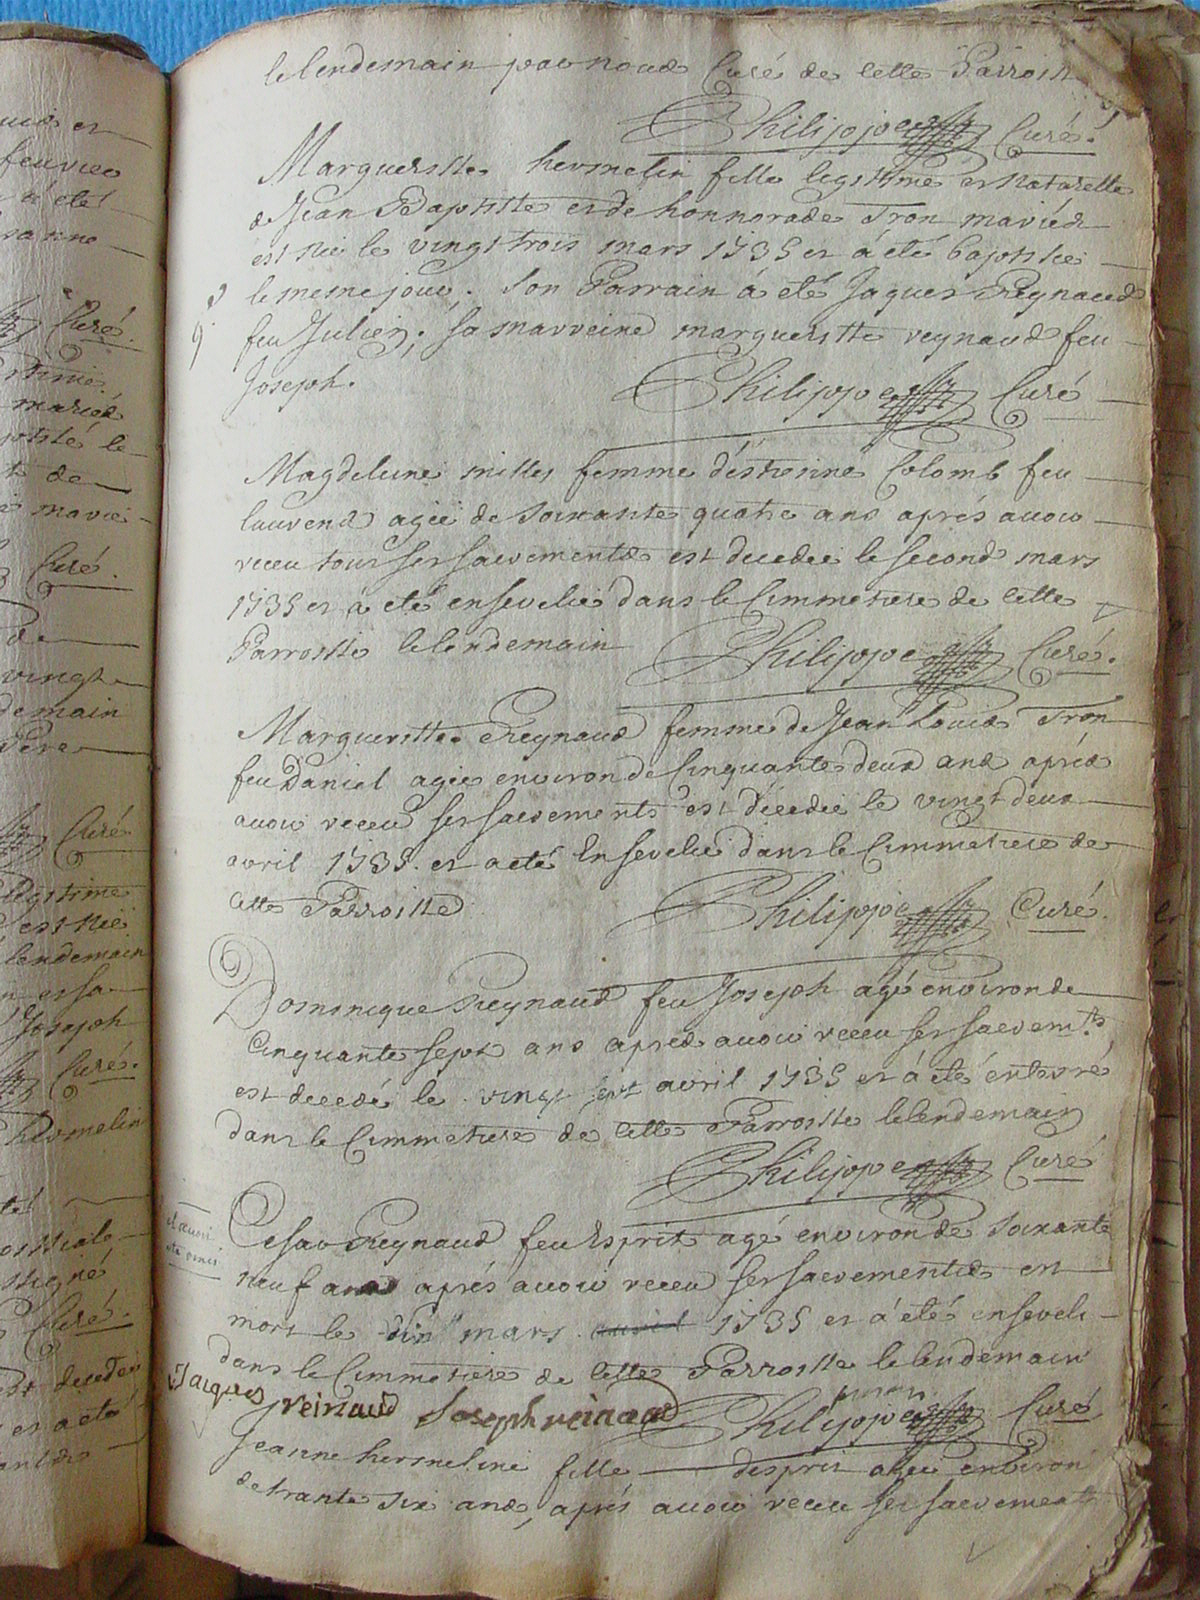 le lendemain par nous Curé de cette Parroisse
Philippe Curé.
Margueritte hermelin fille legitime et naturelle
de Jean Baptiste et de honnorade Tron mariéz
est neé le vingt trois mars 1735 et à eté baptisée
le meme jour. Son Parrain à eté Jaques Reynaud
feu Julien; sa marreine margueritte reynaud feu
Joseph. Philippe Curé
Magdeleine milles femme d'éstienne Colomb feu
laurend agée de soixante quatre ans aprés avoir
receu tous ses sacrements est decedeé le second mars
1735 et à eté ensevelie dans le Cimmetiere de cette
Parroisse le lendemain Philippe Curé.
Margueritte Reynaud femme de Jean Louis Tron
feu Daniel agée environ de Cinquante deux ans aprés
avoir receu ses sacrements est décedée le vingt deux
avril 1735. et a eté Ensevelie dans le Cimmetiere de
cette Parroisse Philippe Curé.
Dominique Reynaud feu Joseph agé environ de
Cinquante sept ans aprés avoir receu ses sacrem.ts
est decedé le vingt avril 1735 et à eté enterré
dans le Cimmetiere de cette Parroisse le lendemain
Philippe Curé
Cesar Reynaud feu Esprit agé environ de soixante
neuf ans aprés avoir receu ses sacrements est
mort le dix mars avril 1735 et à eté enseveli
dans le Cimmetiere de cette Parroisse le lendemain
Jacques reinaud Joseph reinaud Philippe Curé
Jeanne hermeline fille d'esprit agée environ
de trante six ans, aprés avoir receu ses sacrements